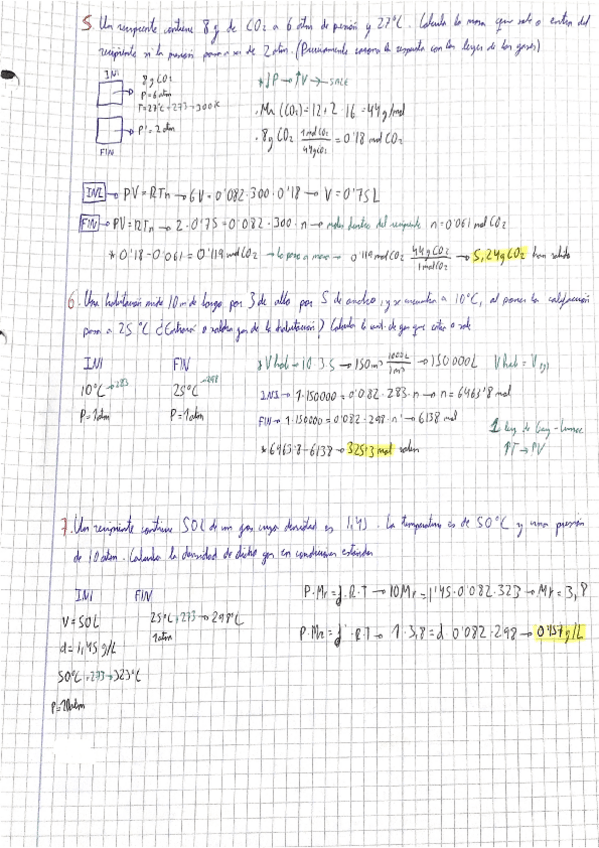 5. Un recipiente contiene 8g de CO₂ a 6 atm de presión y 27ºC. Calcula la masa que sale o entra del
recipiente si la presión pasara a ser de 2 atm. (Previamente razona la respuesta con las leyes de los gases)
INI
8g CO₂
P=6atm
T=27ºC+273→300K
P'=2atm
FIN
*↓P→↑V→SALE
·Mr (CO₂)=12+2·16=44g/mol
·8g CO₂ 1mol CO₂/44g CO₂ = 0'18 mol CO₂
INI → PV=RTn→6V=0'082·300·0'18→V=0'75L
FIN → PV=RTn→2·0'75=0'082·300·n→moles dentro del recipiente n=0'061 mol CO₂
*0'18-0'061=0'119 mol CO₂→lo paso a masa→0'119 mol CO₂ 44g CO₂/1mol CO₂→5,24g CO₂ han salido
6. Una habitación mide 10m de largo por 3 de alto por 5 de ancho, y se encuentra a 10ºC, al poner la calefacción
pasa a 25ºC ¿Entrará o saldrá gas de la habitación? Calcula la cant. de gas que entra o sale
INI FIN
10ºC→283 25ºC→298
P=1atm P=1atm
*Vhab=10·3·5→150m³ 1000L/1m³→150000L Vhab=Vgas
INI→1·150000=0'082·283·n→n=6463'8 mol
FIN→1·150000=0'082·298·n'→6138 mol
*6463'8-6138→325'3 mol salen
1 ley de Gay-Lussac
↑T→↑V
7. Un recipiente contiene 50L de un gas cuya densidad es 1,45. La temperatura es de 50ºC y una presión
de 10atm. Calcula la densidad de dicho gas en condiciones estándar
INI FIN
V=50L 25ºC+273→298ºC
d=1,45g/L 1atm
50ºC+273→323ºC
P=10atm
P·Mr=d·R·T→10Mr=1'45·0'082·323→Mr=3,8
P·Mr=d'·R·T→1·3,8=d·0'082·298→0'157g/L